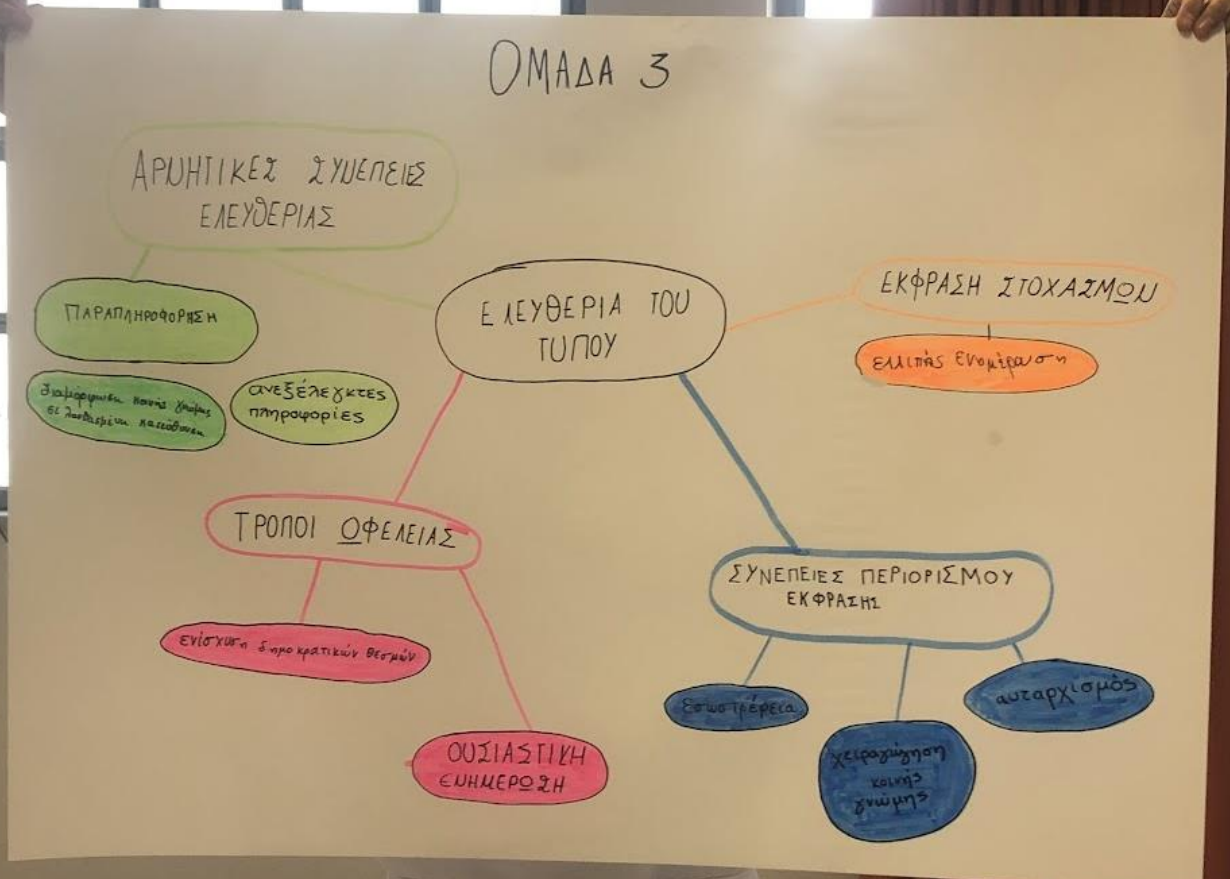 ΟΜΑΔΑ 3
ΑΡΝΗΤΙΚΕΣ ΣΥΝΕΠΕΙΕΣ
ΕΛΕΥΘΕΡΙΑΣ
ΠΑΡΑΠΛΗΡΟΦΟΡΗΣΗ
διαμόρφωση κοινής γνώμης
σε λανθασμένη κατεύθυνση
ανεξέλεγκτες
πληροφορίες
ΕΛΕΥΘΕΡΙΑ ΤΟΥ
ΤΥΠΟΥ
ΕΚΦΡΑΣΗ ΣΤΟΧΑΣΜΩΝ
ελλιπής ενημέρωση
ΤΡΟΠΟΙ ΩΦΕΛΕΙΑΣ
ενίσχυση δημοκρατικών θεσμών
ΟΥΣΙΑΣΤΙΚΗ
ΕΝΗΜΕΡΩΣΗ
ΣΥΝΕΠΕΙΕΣ ΠΕΡΙΟΡΙΣΜΟΥ
ΕΚΦΡΑΣΗΣ
εσωστρέφεια
χειραγώγηση
κοινής
γνώμης
αυταρχισμός